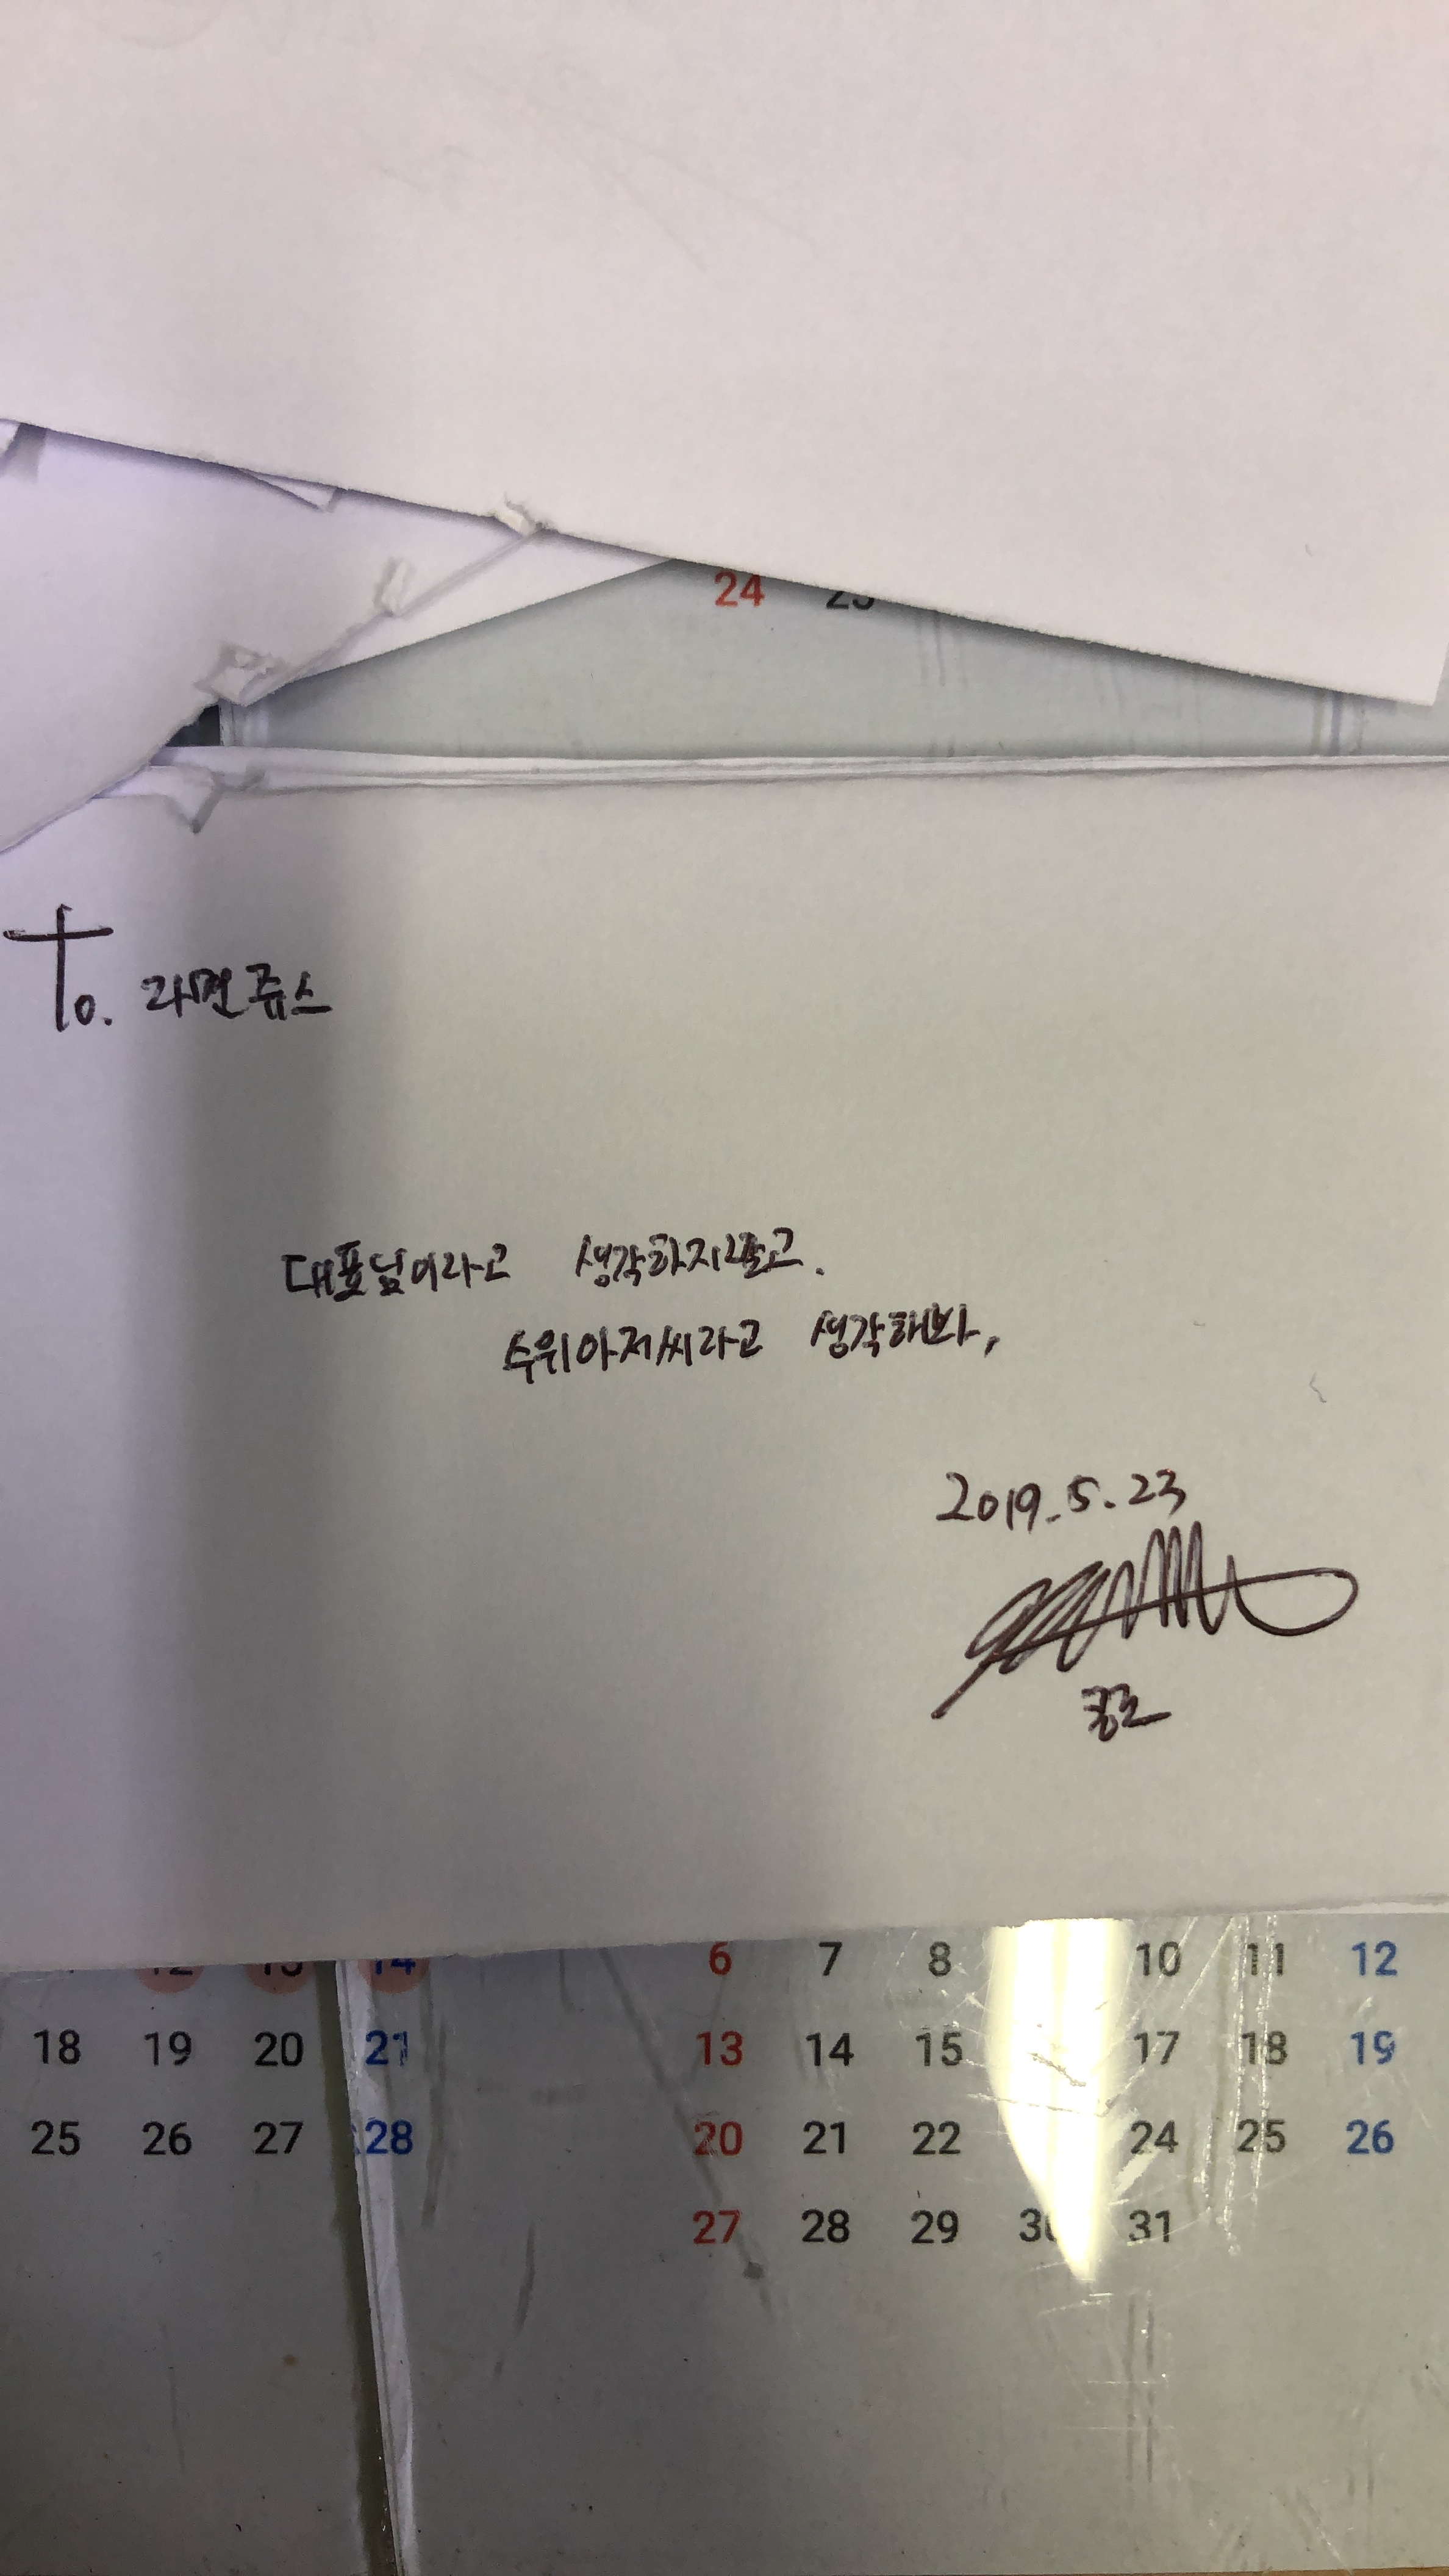 24
To. 라면쥬스
대표님이라고 생각하지말고.
수위아저씨라고 생각해봐,
2019.5.23
6 7 8 10 11 12
18 19 20 21 13 14 15 17 18 19
25 26 27 28 20 21 22 24 25 26
27 28 29 30 31